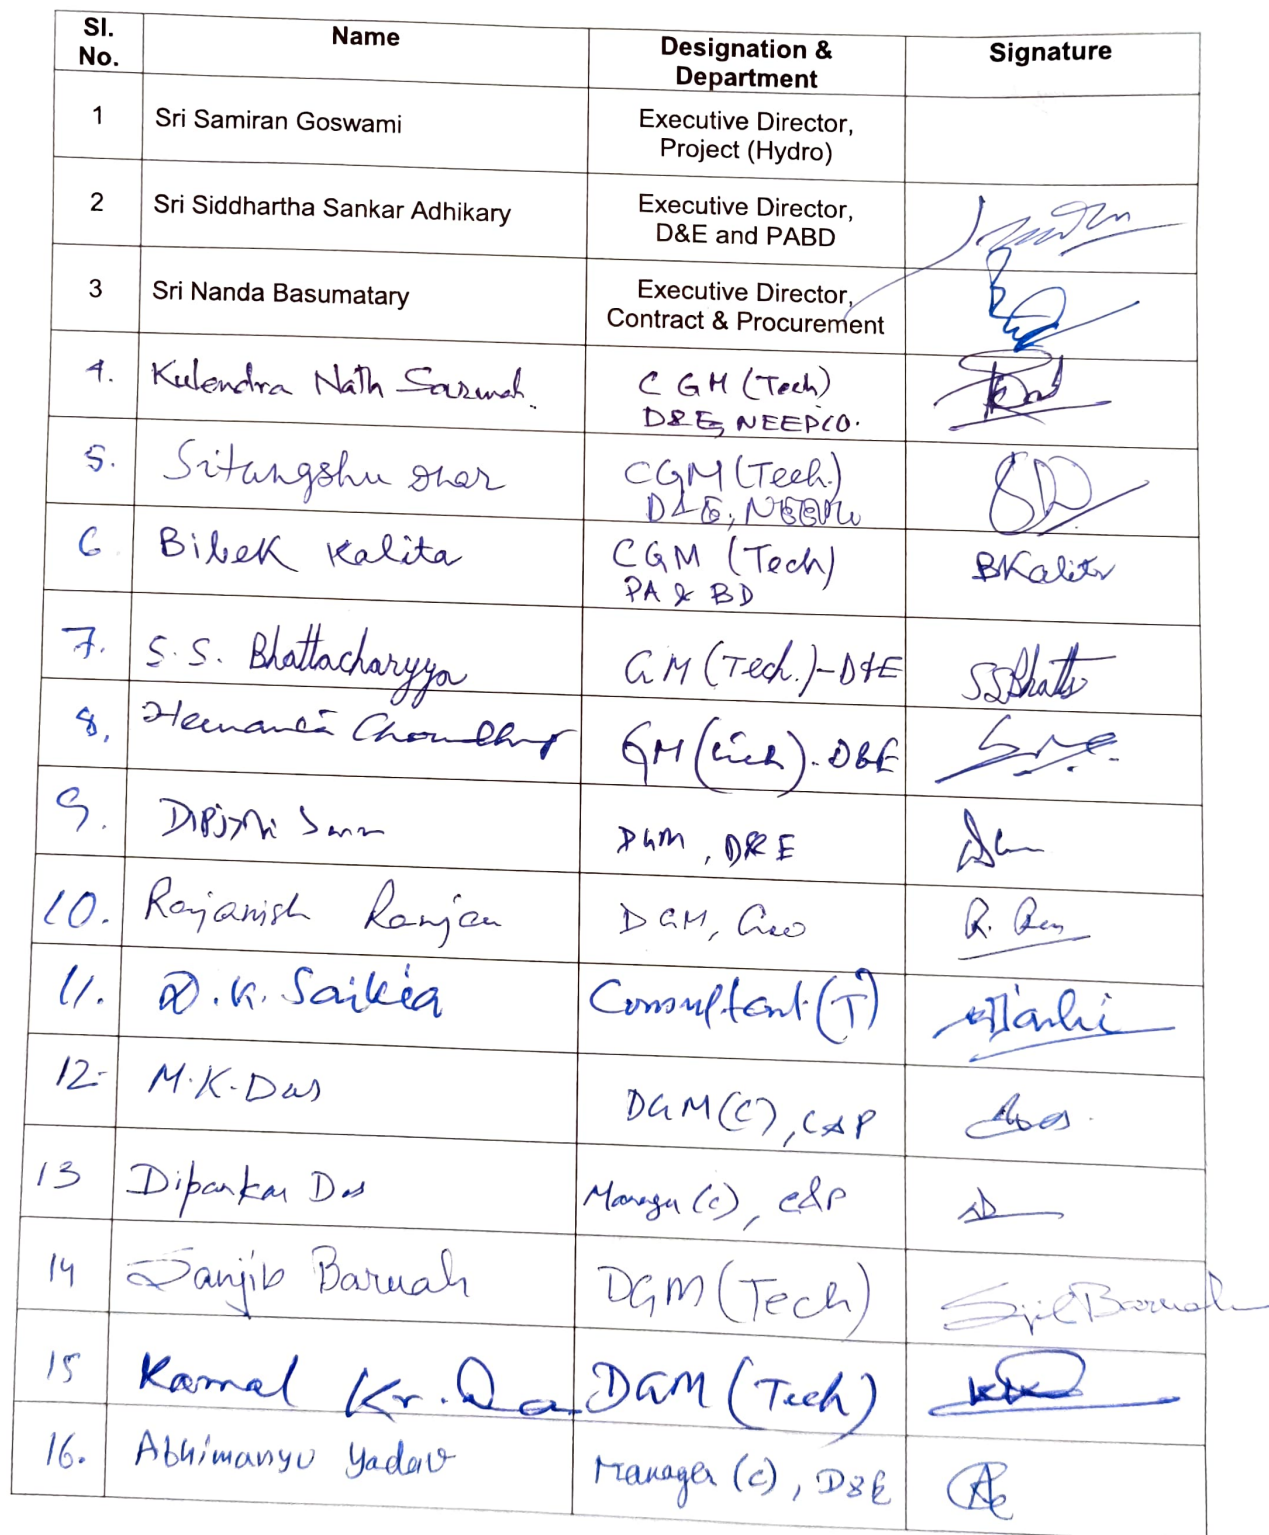 Sl. No. Name Designation & Department Signature
1 Sri Samiran Goswami Executive Director, Project (Hydro)
2 Sri Siddhartha Sankar Adhikary Executive Director, D&E and PABD
3 Sri Nanda Basumatary Executive Director, Contract & Procurement
4. Kulendra Nath Sarmah. CGM (Tech) D&E, NEEPCO.
5. Sitangshu Dhar CGM (Tech.) D&E, NEEPCO
6 Bibek Kalita CGM (Tech) PA & BD BKalita
7. S.S. Bhattacharyya GM (Tech.)-D&E SSBhatta
8. Hemanta Choudhury GM (Tech). D&E
9. DGM, D&E
10. Rajanish Ranjan DGM, Geo R. Ran
11. D.K. Saikia Consultant (T)
12. M.K. Das DGM (C), C&P
13 Dipankar Das Manager (C), C&P
14 Sanjib Baruah DGM (Tech) Baruah
15 Kamal Kr. DGM (Tech)
16. Abhimanyu Yadav Manager (C), D&E